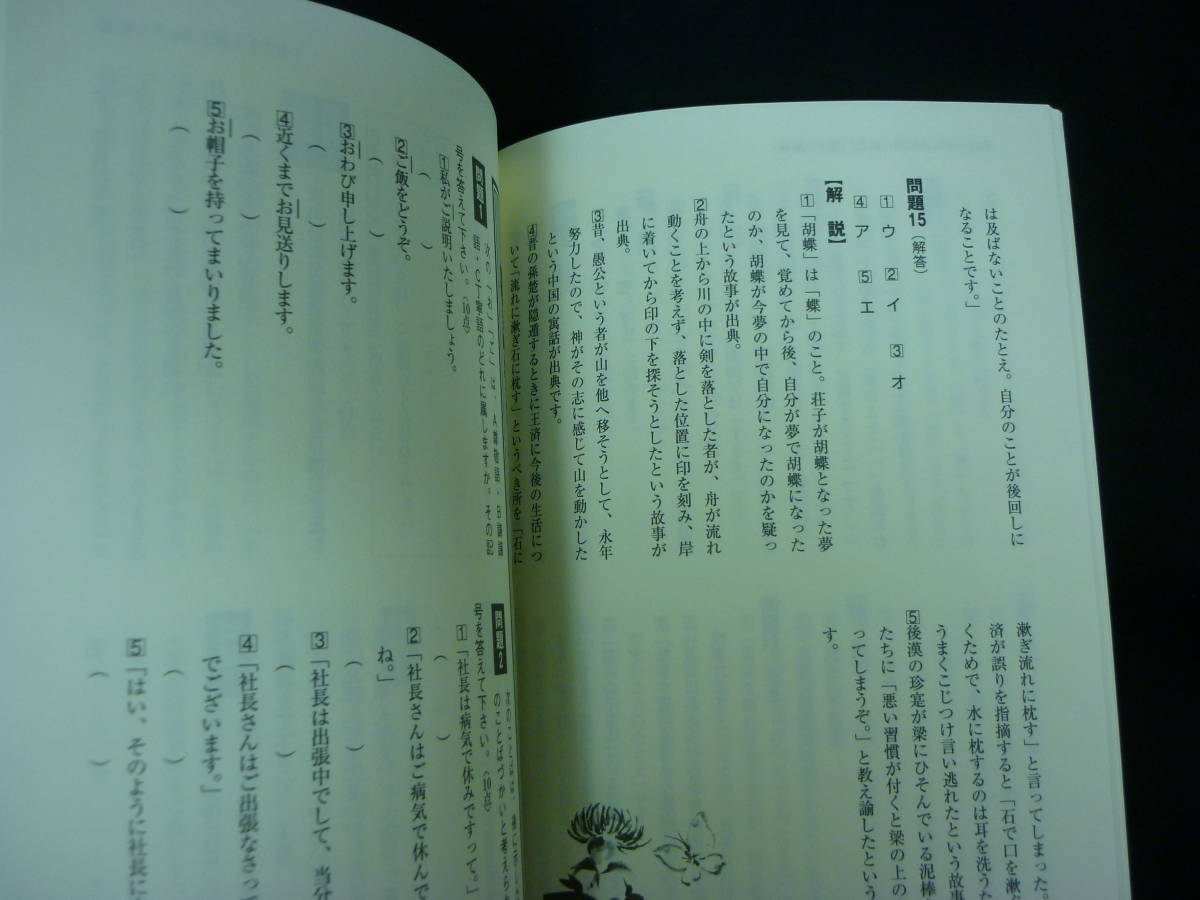 は及ばないことのたとえ。自分のことが後回しに
なることです。」
問題15（解答）
1 ウ 2 イ 3 オ
4 ア 5 エ
【解説】
1「胡蝶」は「蝶」のこと。荘子が胡蝶となった夢
を見て、覚めてから後、自分が夢で胡蝶になった
のか、胡蝶が今夢の中で自分になったのかを疑っ
たという故事が出典。
2舟の上から川の中に剣を落とした者が、舟が流れ
動くことを考えず、落とした位置に印を刻み、岸
に着いてから印の下を探そうとしたという故事が
出典。
3昔、愚公という者が山を他へ移そうとして、永年
努力したので、神がその志に感じて山を動かした
という中国の寓話が出典です。
4昔の孫楚が隠遁するときに王済に今後の生活につ
いて「流れに漱ぎ石に枕す」というべき所を「石に
漱ぎ流れに枕す」と言ってしまった。
済が誤りを指摘すると「石で口を漱ぐ
くためで、水に枕するのは耳を洗うた
うまくこじつけ言い逃れたという故事
5後漢の珍寔が梁にひそんでいる泥棒
たちに「悪い習慣が付くと梁の上の
ってしまうぞ。」と教え諭したという
す。
問題1 次の「お、「ご」は、A尊敬語・B謙譲
語・C丁寧語のどれに属しますか。その記
号を答えて下さい。(10点)
1私がご説明いたしましょう。
（　）
2ご飯をどうぞ。
（　）
3おわび申し上げます。
（　）
4近くまでお見送りします。
（　）
5お帽子を持ってまいりました。
（　）
問題2 次のことばは、
のことばづかいと考えら
号を答えて下さい。(10点)
1「社長は病気で休みですって。」
（　）
2「社長さんはご病気で休んで
ね。」
（　）
3「社長は出張中でして、当分
（　）
4「社長さんはご出張なさって
でございます。」
（　）
5「はい、そのように社長に
（　）